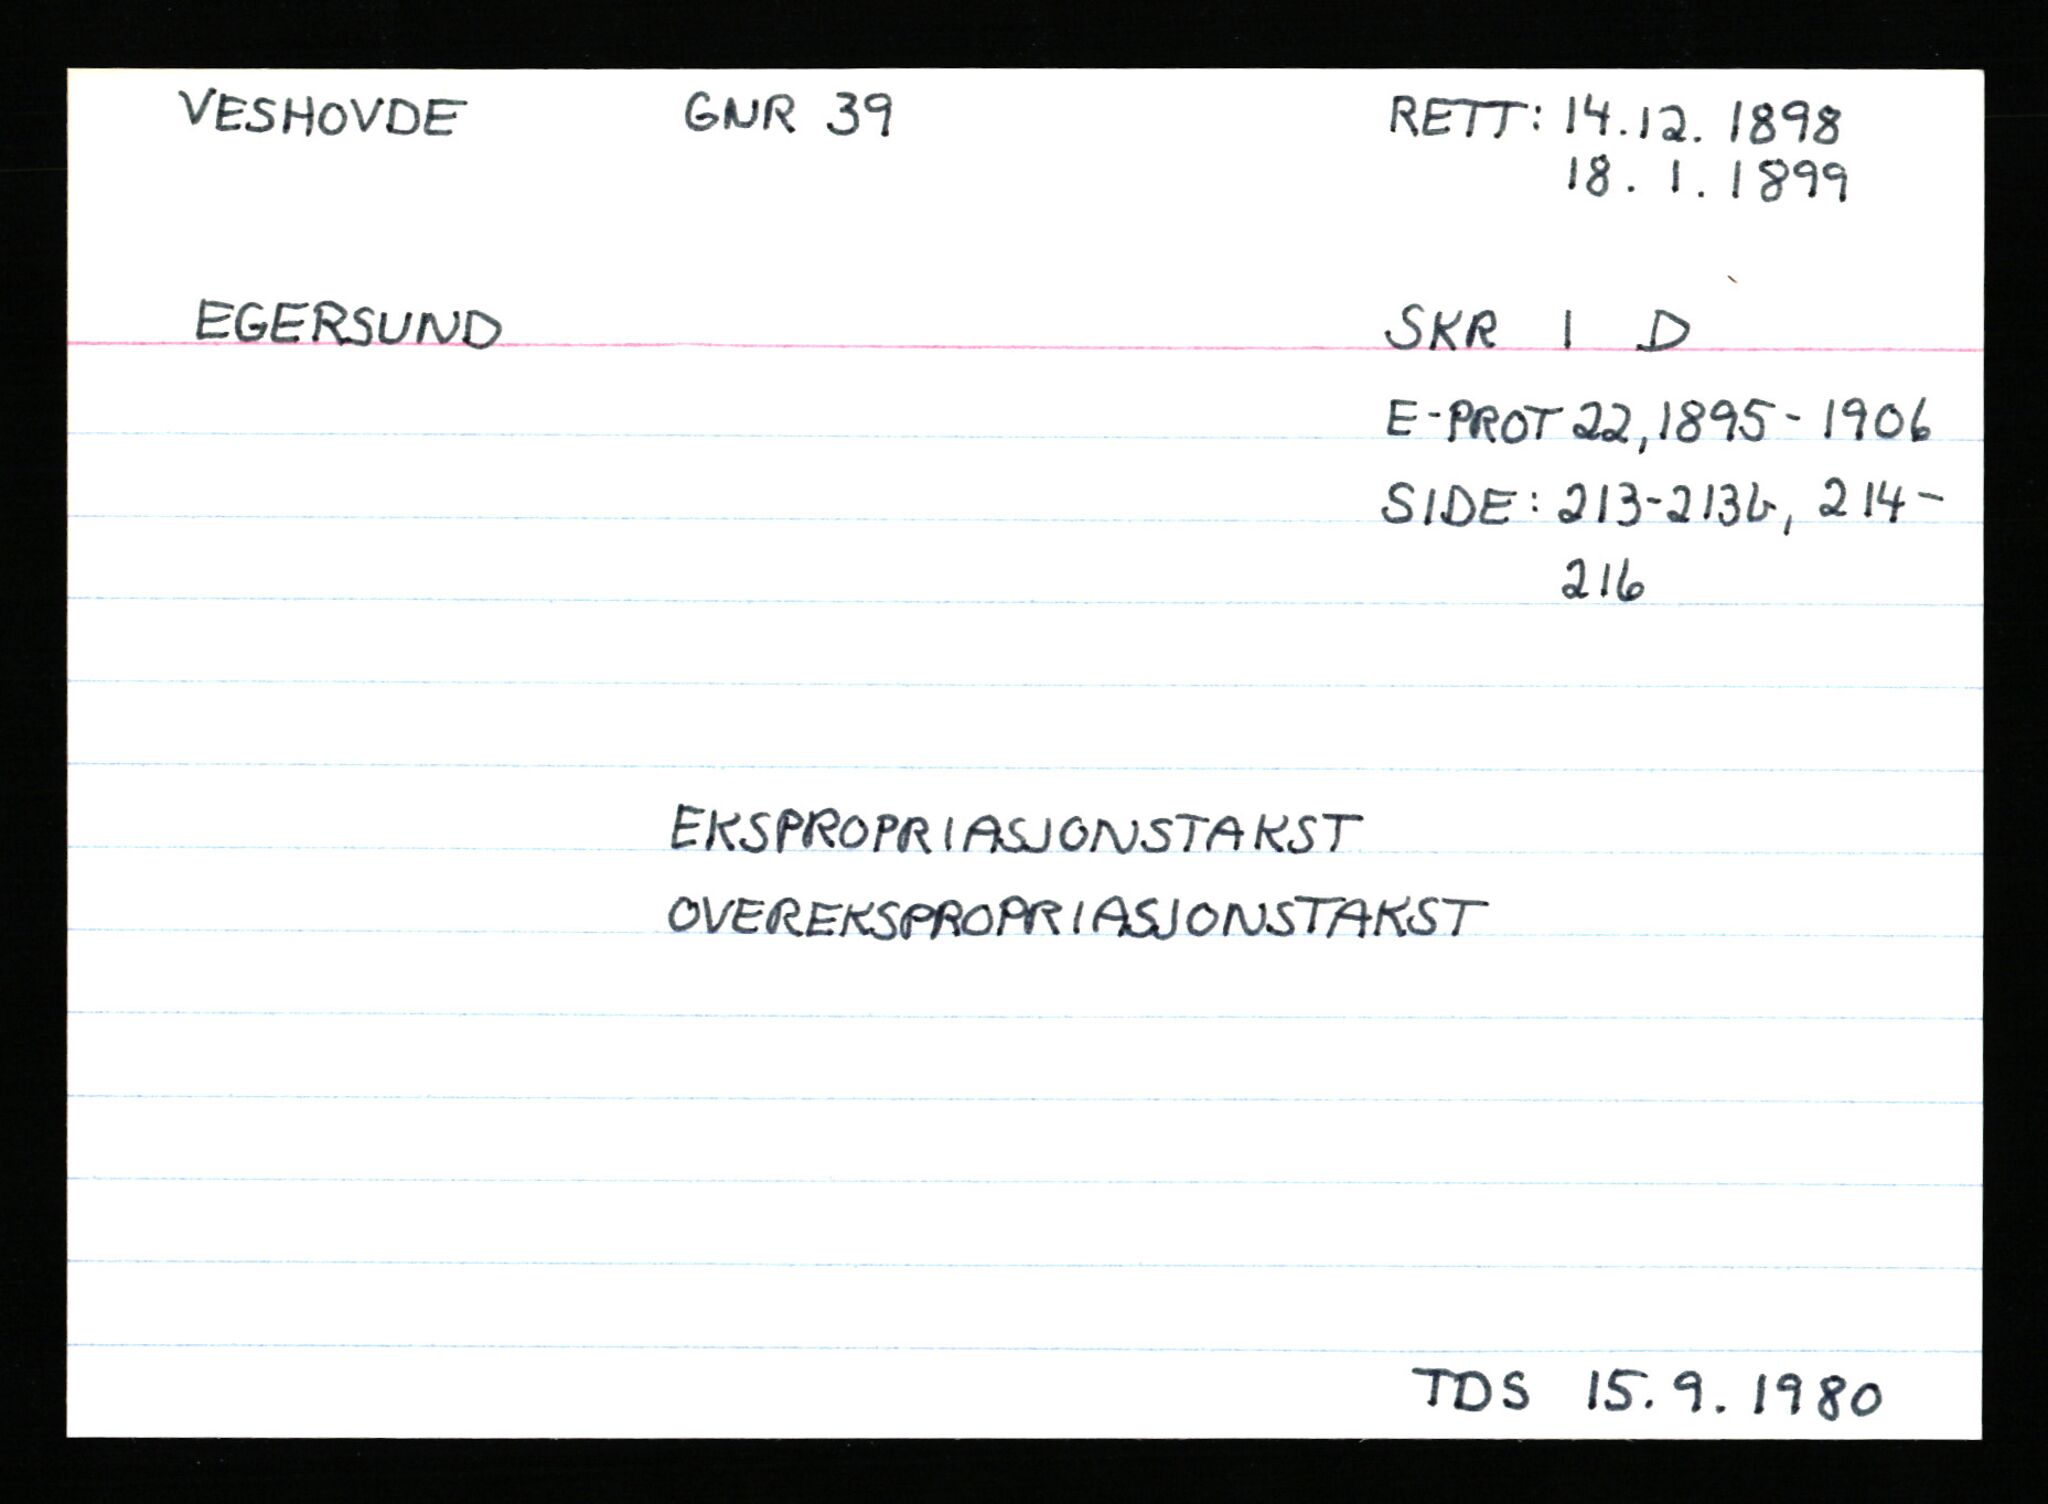 VESHOVDE GNR 39 RETT: 14.12. 1898
18. 1. 1899
EGERSUND SKR 1 D
E-PROT 22, 1895-1906
SIDE: 213-213b, 214-
216
EKSPROPRIASJONSTAKST
OVEREKSPROPRIASJONSTAKST
TDS 15.9.1980